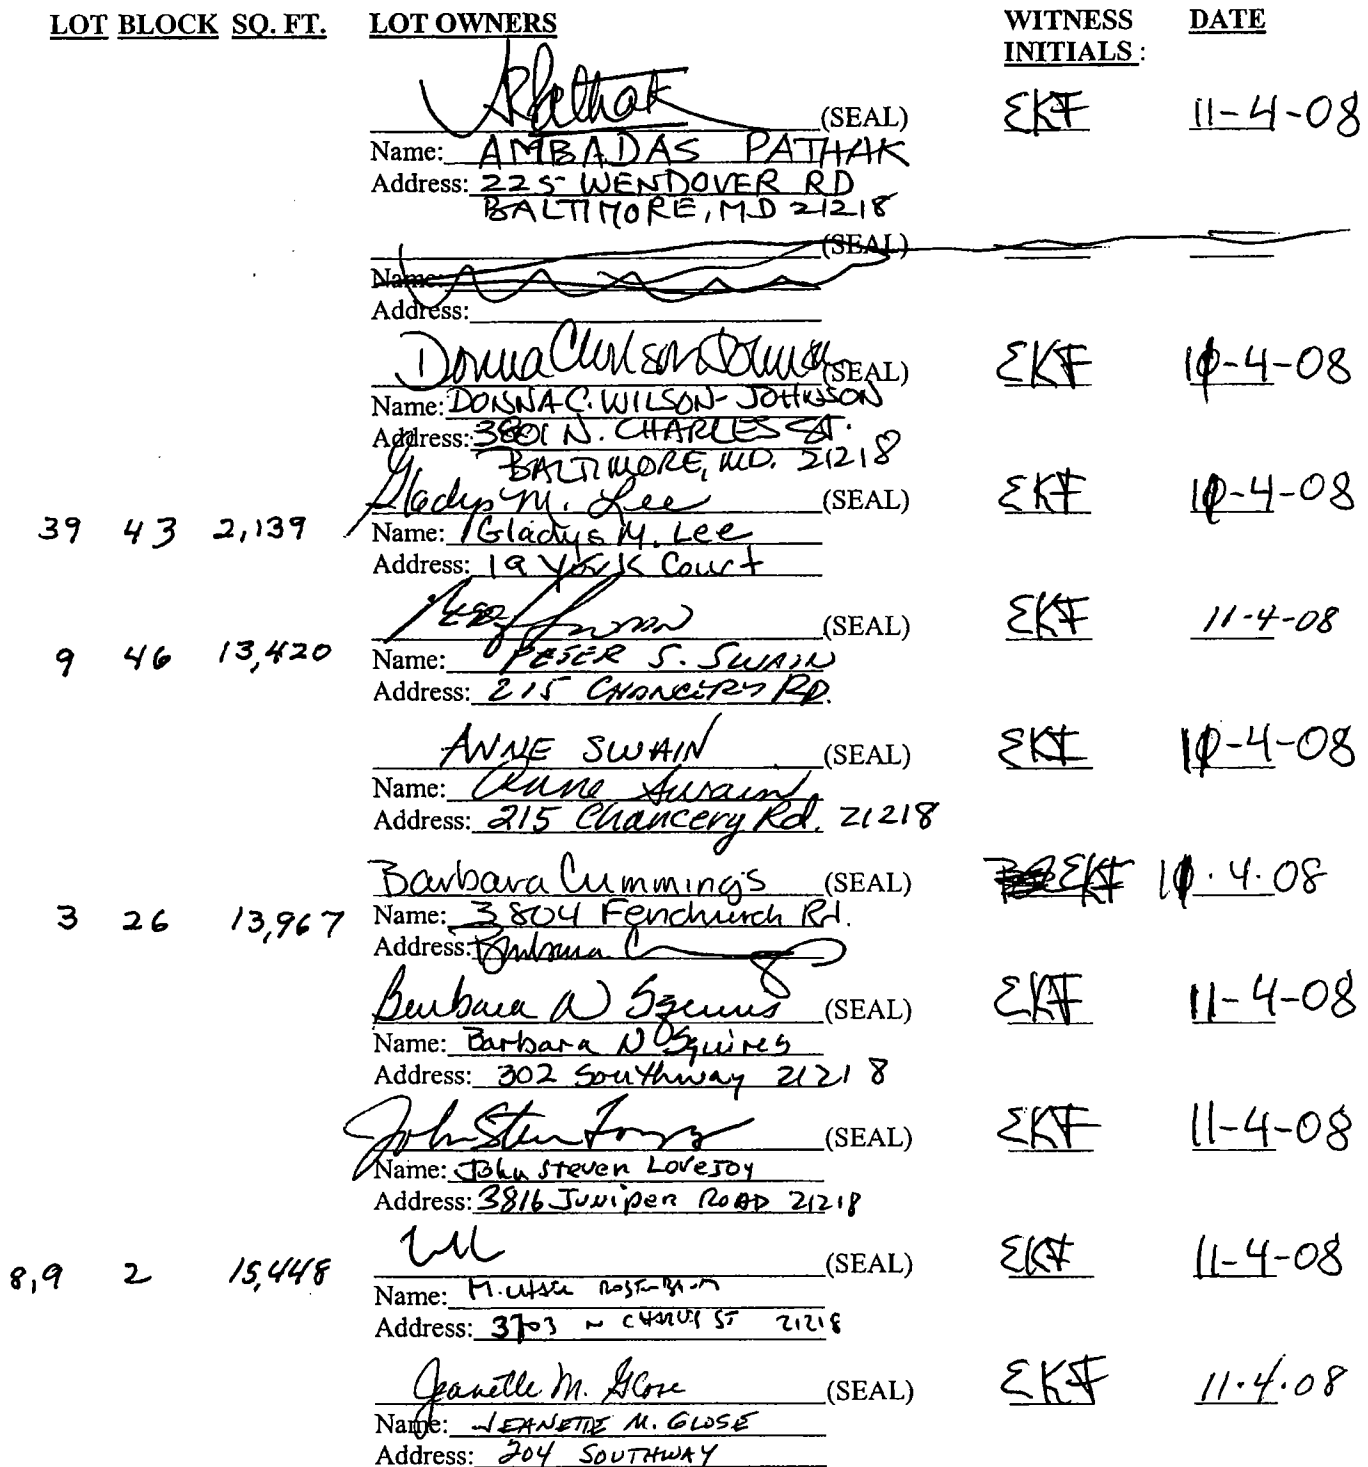 LOT BLOCK SQ. FT. LOT OWNERS WITNESS INITIALS: DATE
Pathak (SEAL) EKF 11-4-08
Name: AMBADAS PATHAK
Address: 225 WENDOVER RD
BALTIMORE, MD 21218
(SEAL)
Name:
Address:
(SEAL) EKF 11-4-08
Name: DONNA C. WILSON-JOHNSON
Address: 3801 N. CHARLES ST.
BALTIMORE, MD. 21218
Gladys M. Lee (SEAL) EKF 11-4-08
39 43 2,139 Name: Gladys M. Lee
Address: 19 York Court
(SEAL) EKF 11-4-08
9 46 13,420 Name: PETER S. SWAIN
Address: 215 CHANCERY RD.
ANNE SWAIN (SEAL) EKF 11-4-08
Name: Anne Swain
Address: 215 Chancery Rd. 21218
Barbara Cummings (SEAL) EKF 11.4.08
3 26 13,967 Name: 3804 Fenchurch Rd.
Address: Barbara C
Barbara N Squires (SEAL) EKF 11-4-08
Name: Barbara N Squires
Address: 302 Southway 21218
John Steven (SEAL) EKF 11-4-08
Name: John Steven Lovejoy
Address: 3816 Juniper ROAD 21218
8,9 2 15,448 (SEAL) EKF 11-4-08
Name: M.
Address: 3703 N CHARLES ST 21218
Jeanette M. Glose (SEAL) EKF 11.4.08
Name: JEANETTE M. GLOSE
Address: 204 SOUTHWAY